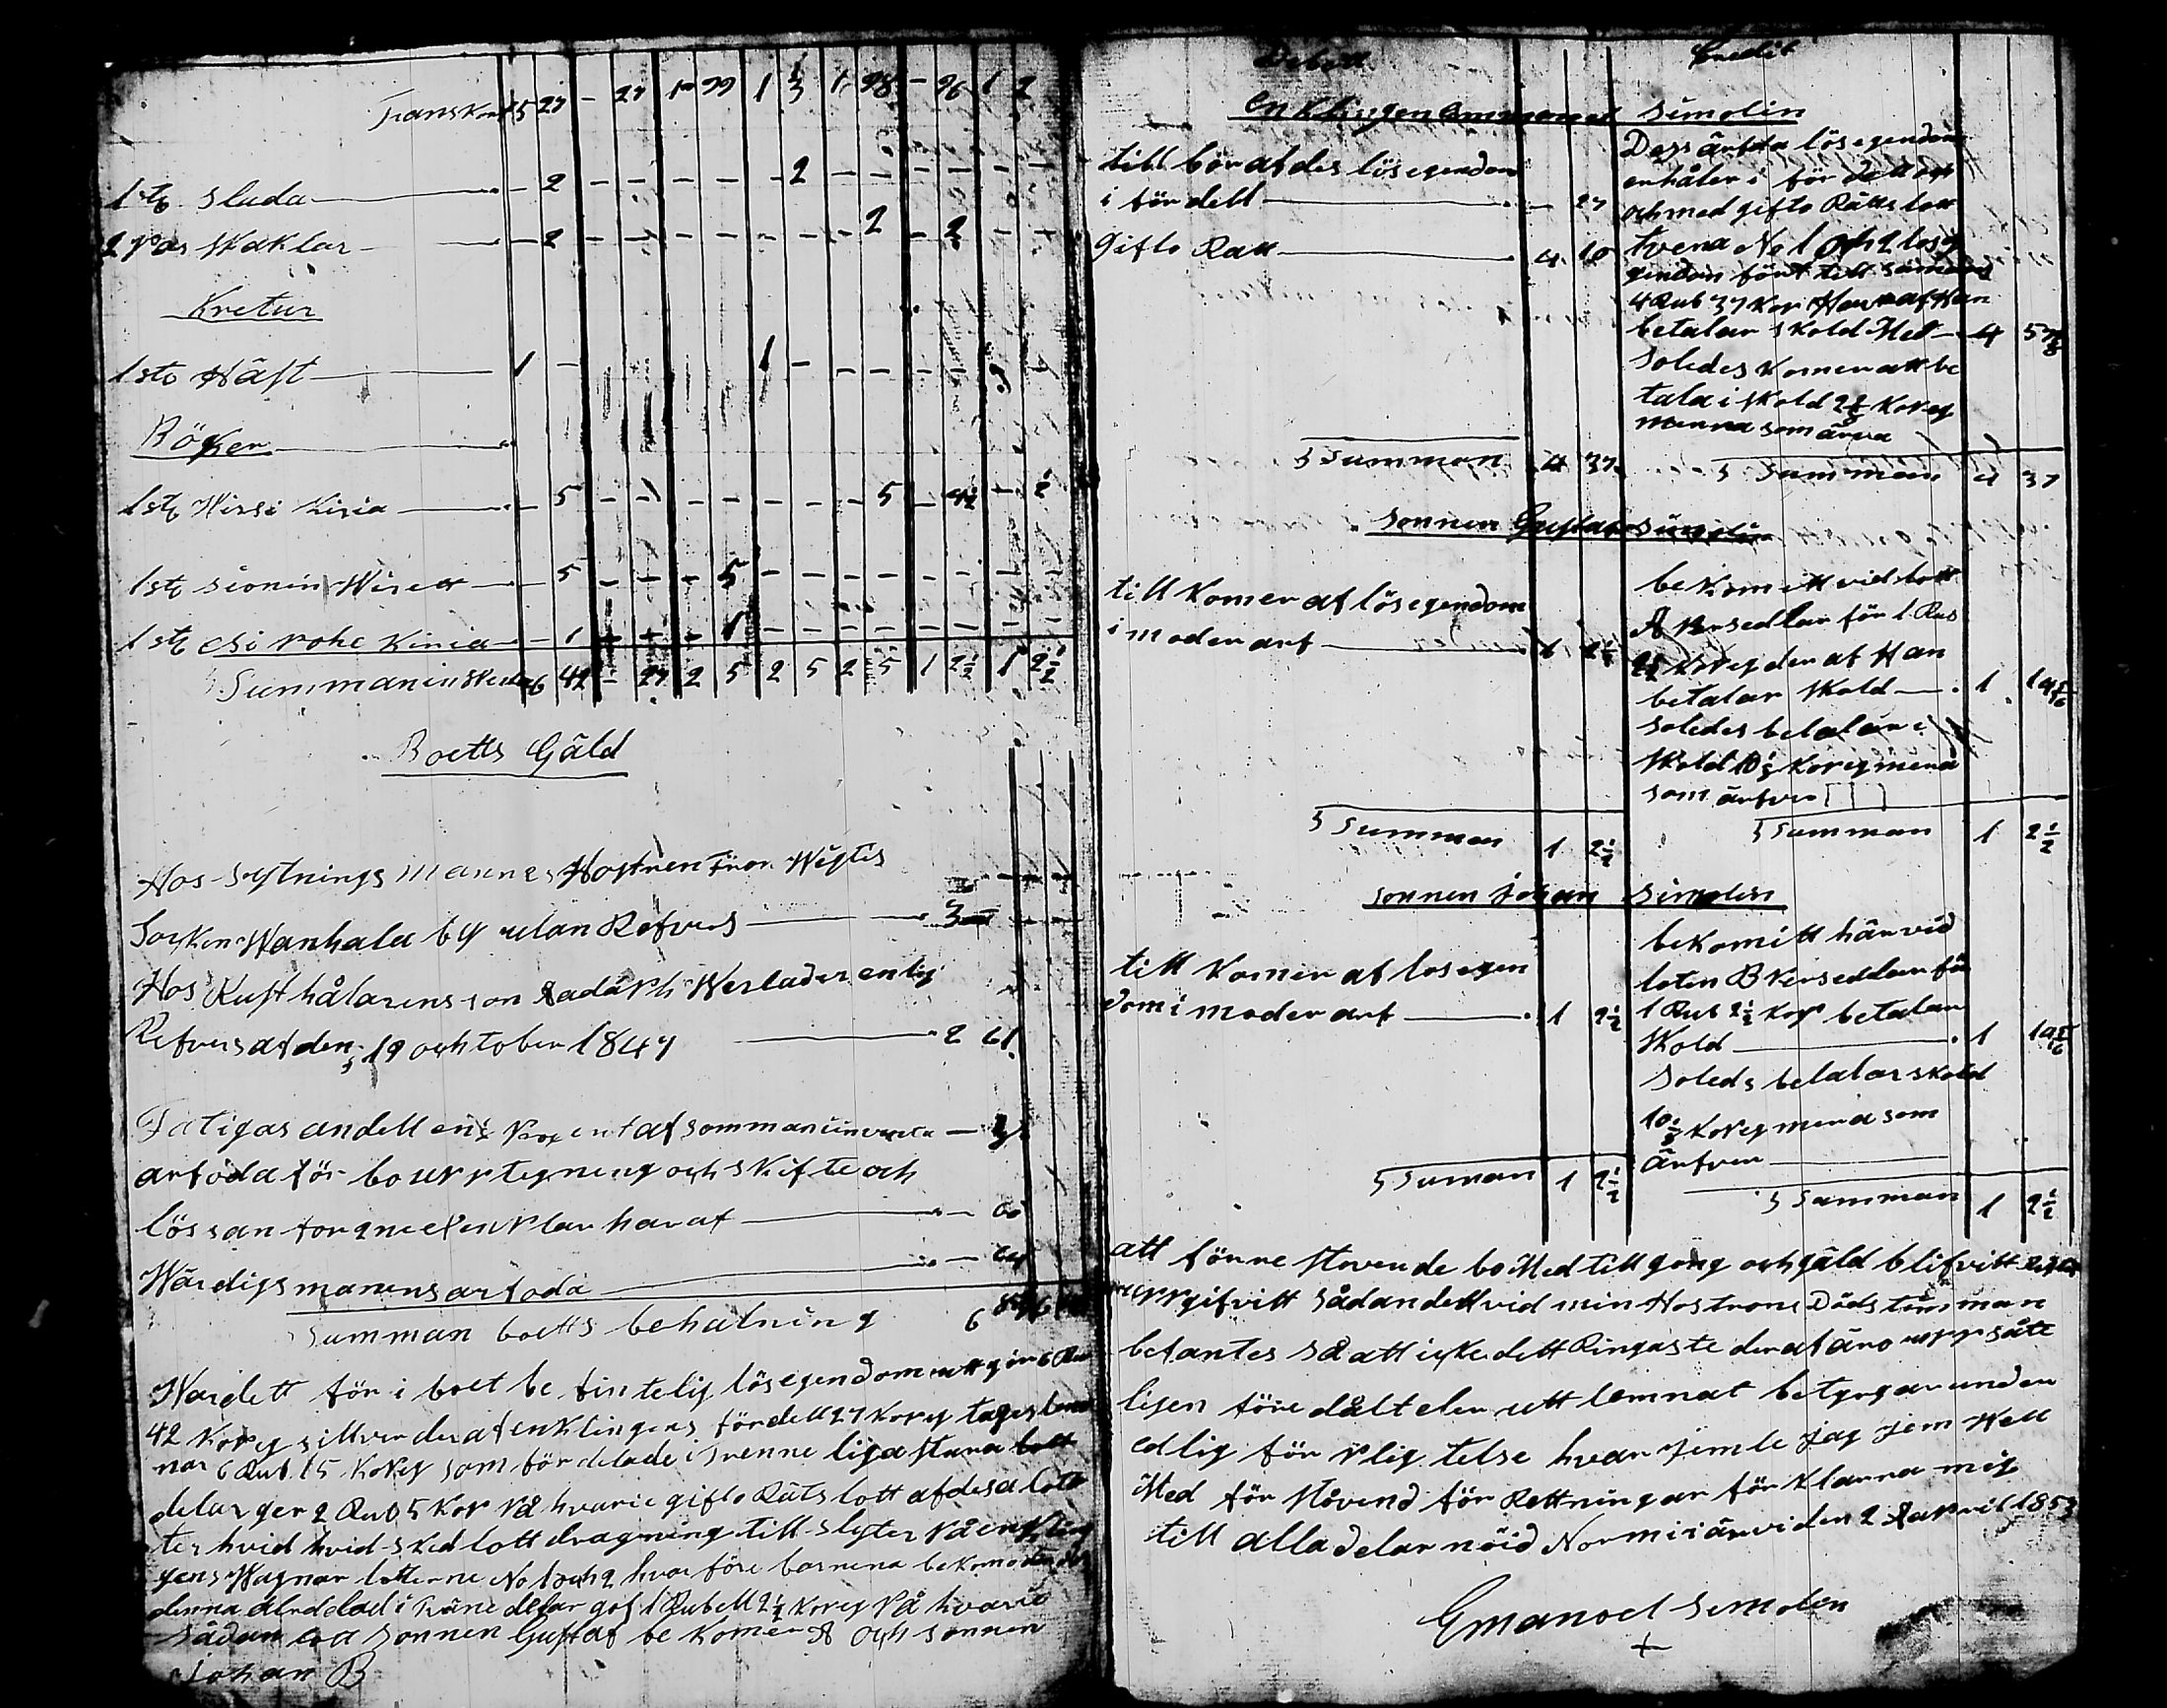 Transkort 5 27 - 27 1 99 1 1/3 1 28 - 26 1 2
1 st slada - 2 - - - - - 2 - - - - - -
2 Par skaklar - 2 - - - - - - - 2 - 2 - -
Kretur
1 st Häst 1 - 1 - - - - -
Böcker
1 st Wirsi Kiria - 5 - - - - - - - 5 - 4½ - ½
1 st sionin Wirett - 5 - - - 5 - - - - - - - -
1 st esi rohc Kiria - 1 - - - 1 - - - - - - - -
Summan 6 42 - 27 2 5 2 5 2 5 1 2½ 1 2½
Boetts Gäld
Hos sytnings mannes Hostren från Wigtis
Socken Wanhala by utan Refvers 3
Hos Rusthålarens son enlig
Refvers af den 19 october 1847 2 61
Fatigas andell en ½ Procent af somman
arfoda för bouppteqning och skifte och
lössan for exemplar haraf
Wärdigsmanens arfoda
Summan boetts behalning 6
Wardett för i boet be fintelig lösegendom utt gör 6 Rub
42 Kopeg silfver deraf enklingens fördell 27 kopeg tages
nar 6 Rub 15 Kopeg som för delade i trenne liga stura lott
delar ger 2 Rub 5 Kop På hvarie gifto Räts lott af desa lott
ter hvid hvid sked lott dragning till slyter På enkling
gens Wagnar lotterne No 1 och 2 hvarföre barnena bekomo
denna alrdelad i Twäne delar gof 1 Rubell 2½ Kopeg På hvarie
sådan lott sonnen Gustaf be komer A och sonnen
Johan B
Debett
Credit
Enklingen Emmanuel Simolin
till bör af des lösegendom
i för dell 27
Gifto Ratt 4 10
Dess ärfda lösegendom
erhåler i för dett
och med gifto Rätts lott
tvena No 1 och 2 lös e
gendom fört till samans
4 Rub 37 Kop Haraf Han
betalar skold Med 4
soledes Komer att be
tala i skold Kopeg
menna som ärfva
Summan 4 37
Summan 4 37
Sonnen Gustaf Simolin
till Komer af lösegendom
i moder arf 1 2½
be Komitt vid lott
A Persedlar för 1 Rub
2½ Kopeg deraf Han
betalar skold 1
soledes betalar i
skold 10½ Kopeg mena
som ärfver
Summan 1 2½
Summan 1 2½
Sonnen Johan Simolin
till Komer af losegen
dom i moder arf 1 2½
bekomitt här vid
loten B Persedlar för
1 Rub 2½ Kop betalar
skold 1
soleds betalar skold
10½ Kopeg mena som
ärfver
Suman 1 2½
Summan 1 2½
att förne stovende bo Med till gong och gäld blifvitt
uppgifvitt sådan dett vid min Hostrons Döds timman
befantes så att icke dett Ringaste deraf äro upp såte
ligen före dålt eler utt lemnat betygar under
edlig för plig telse hvar jemte jag jem Well
Med för stövend för Rettningar för Klarra mig
till alla delar nöid Normi den 2 April 1853
Emanoel Simolin
+